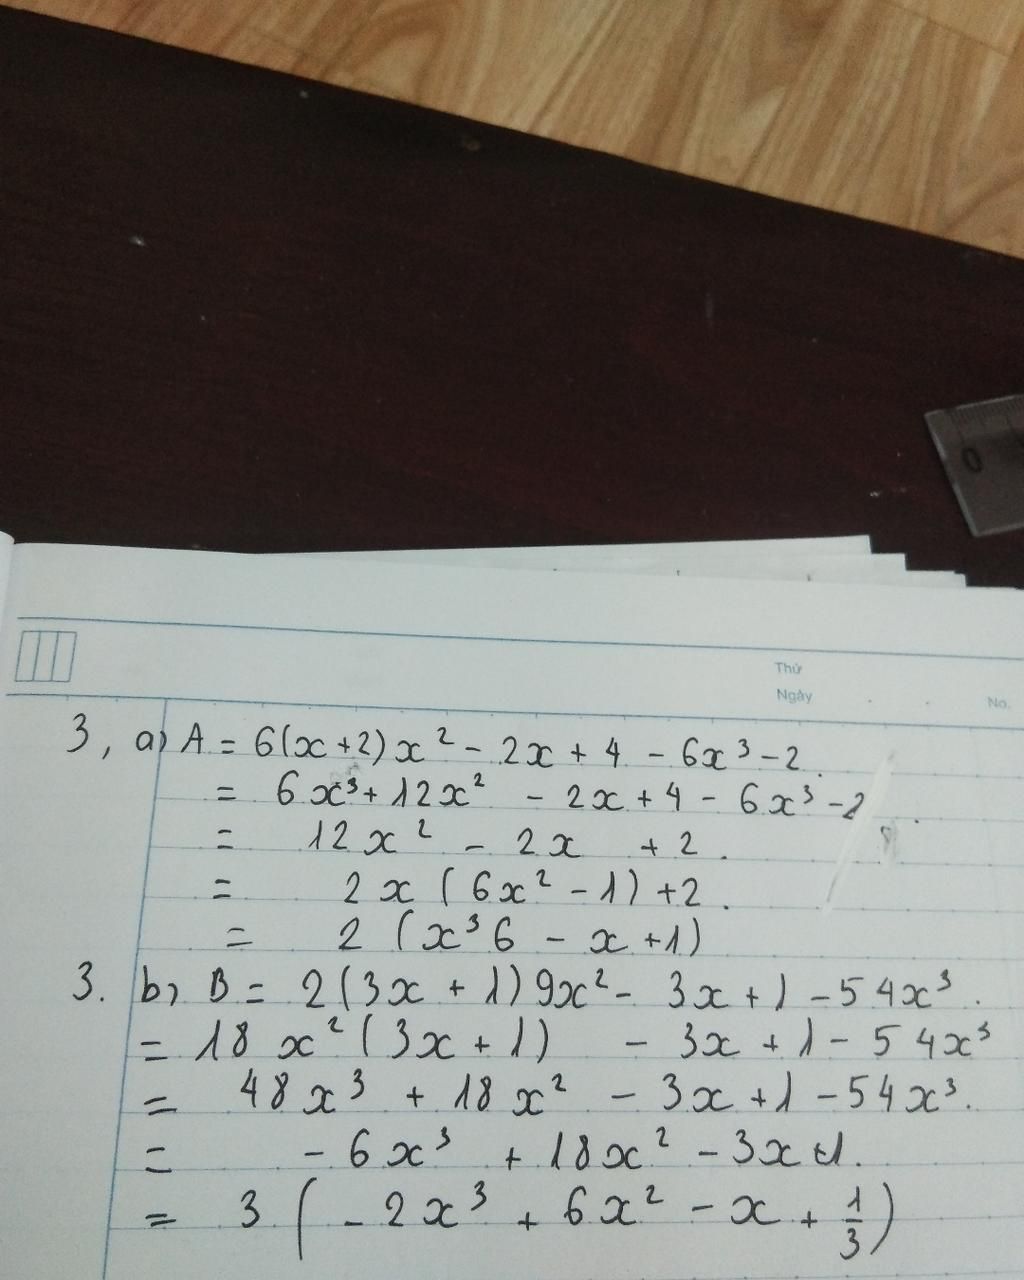 0
Thứ
Ngày
No.
3, a) A = 6(x+2)x² - 2x + 4 - 6x³ - 2.
= 6x³ + 12x² - 2x + 4 - 6x³ - 2.
= 12x² - 2x + 2.
= 2x (6x² - 1) + 2.
= 2 (x³6 - x + 1)
3. b, B = 2(3x + 1)9x² - 3x + 1 - 54x³.
= 18x²(3x + 1) - 3x + 1 - 54x³
= 48x³ + 18x² - 3x + 1 - 54x³.
= - 6x³ + 18x² - 3x + 1.
= 3 (- 2x³ + 6x² - x + 1/3)